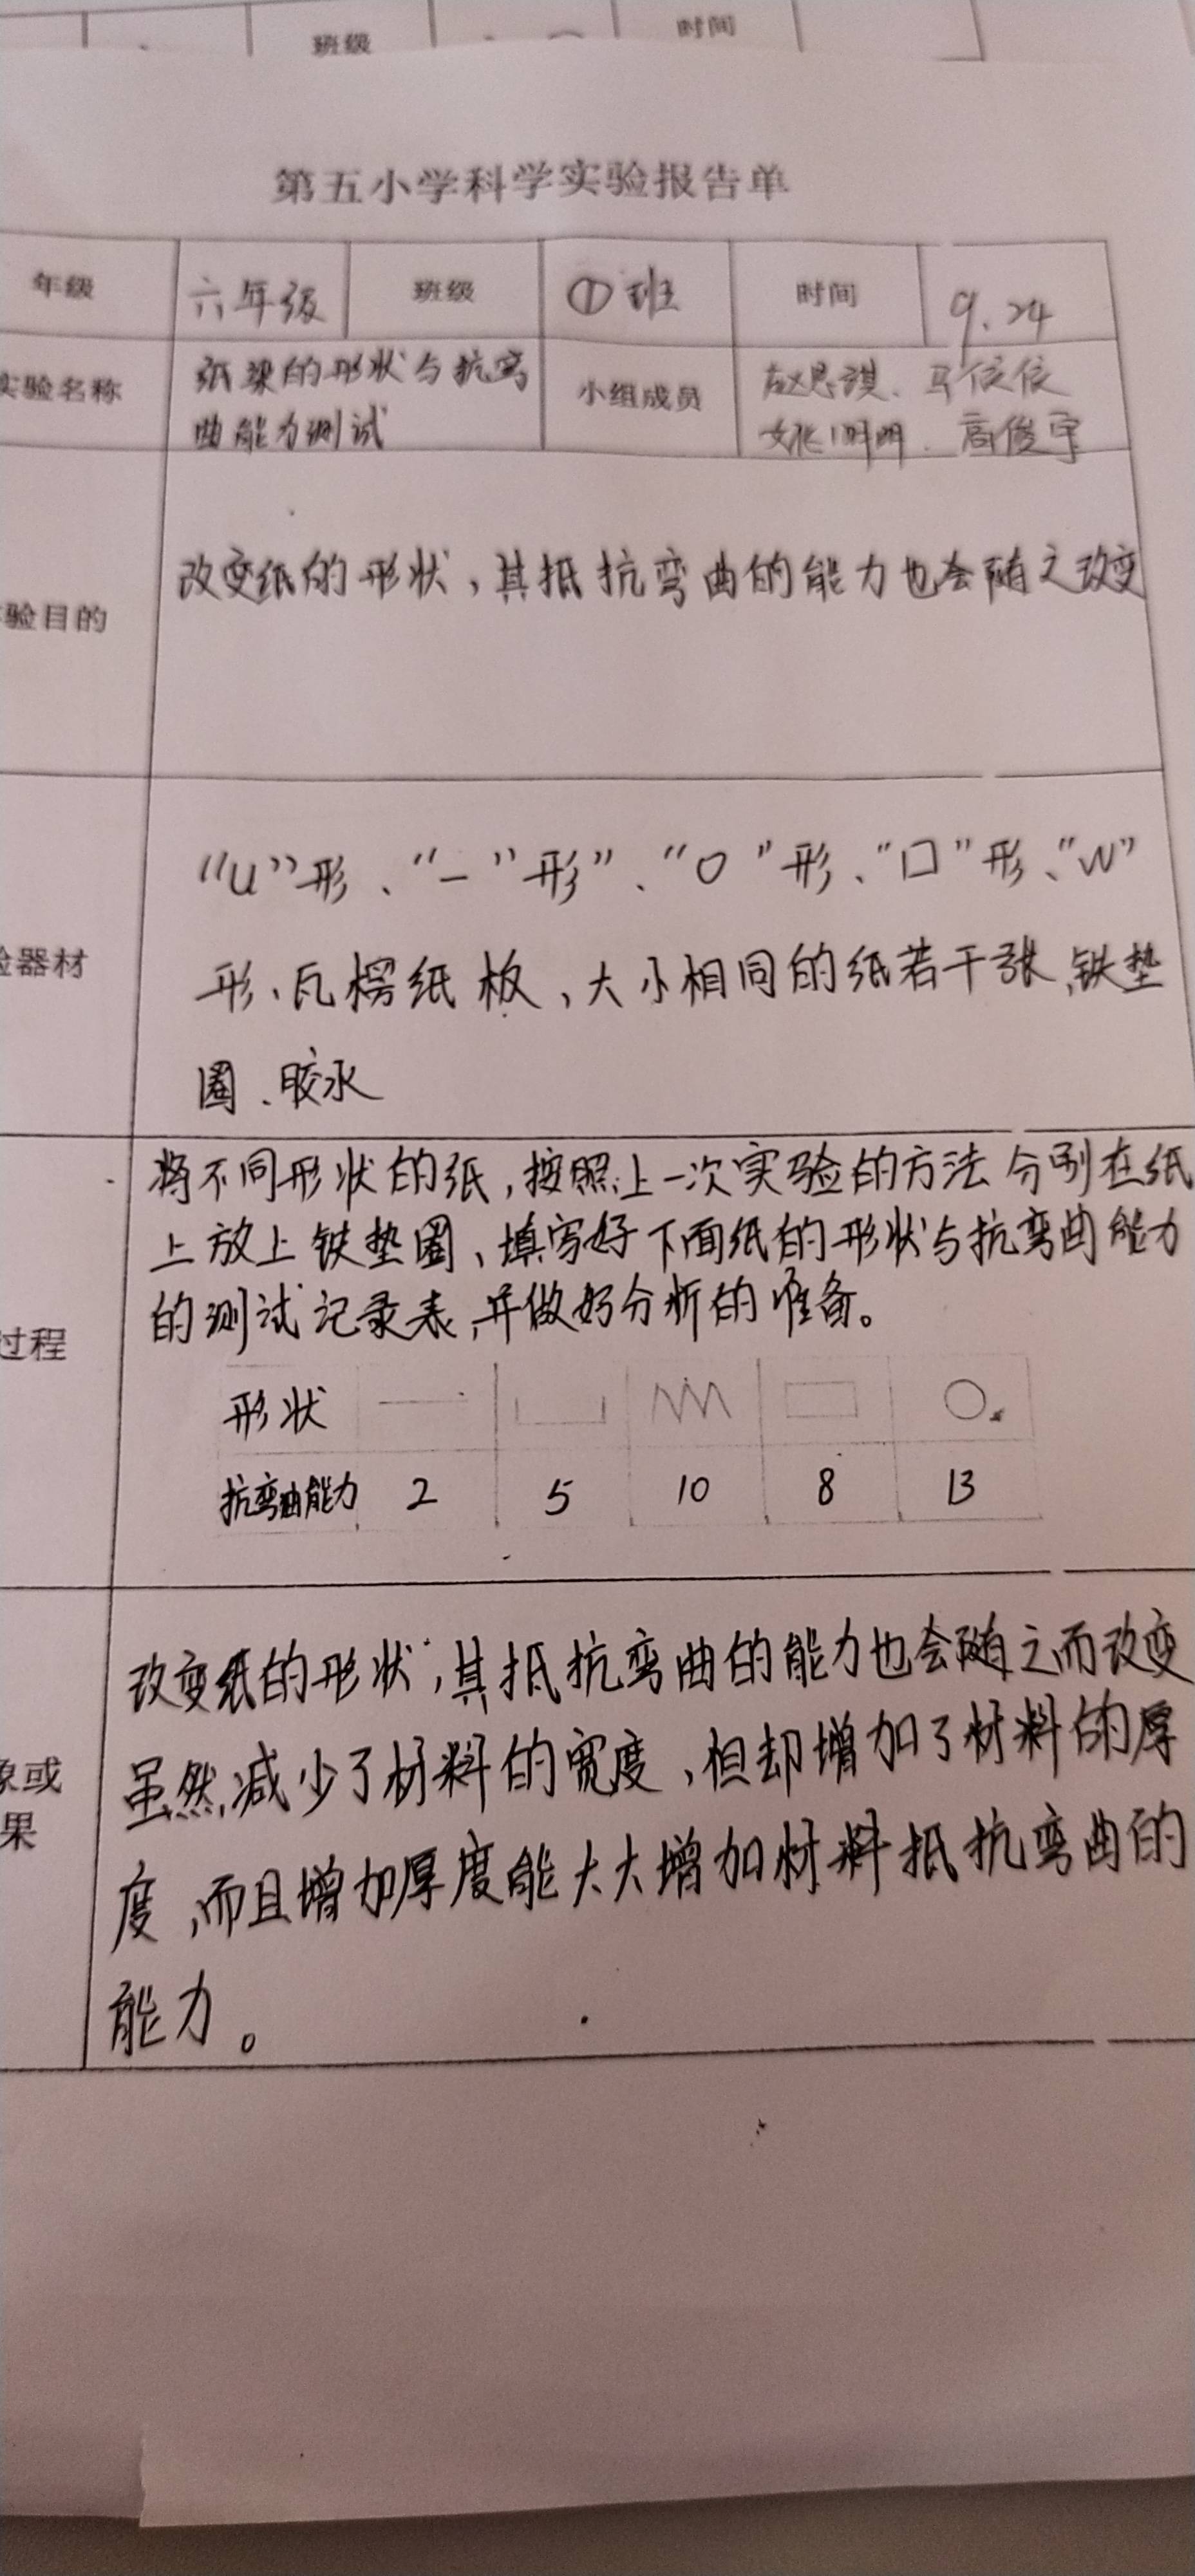 班级 时间
第五小学科学实验报告单
年级 六年级 班级 ①班 时间 9.24
实验名称 纸梁的形状与抗弯 小组成员 赵思琪、马依依
曲能力测试 姚明明、高俊宇
改变纸的形状，其抵抗弯曲的能力也会随之改变
验目的
“U”形、“一”形”、“O”形、“口”形、“W”
验器材 形、瓦楞纸板、大小相同的纸若干张、铁垫
圈、胶水
将不同形状的纸，按照上一次实验的方法分别在纸
上放上铁垫圈、填写好下面纸的形状与抗弯曲能力
过程 的测试记录表，并做好分析的准备。
形状
抗弯曲能力 2 5 10 8 13
改变纸的形状，其抵抗弯曲的能力也会随之而改变
象或 虽然减少了材料的宽度，但却增加了材料的厚
果
度，而且增加厚度能大大增加材料抵抗弯曲的
能力。